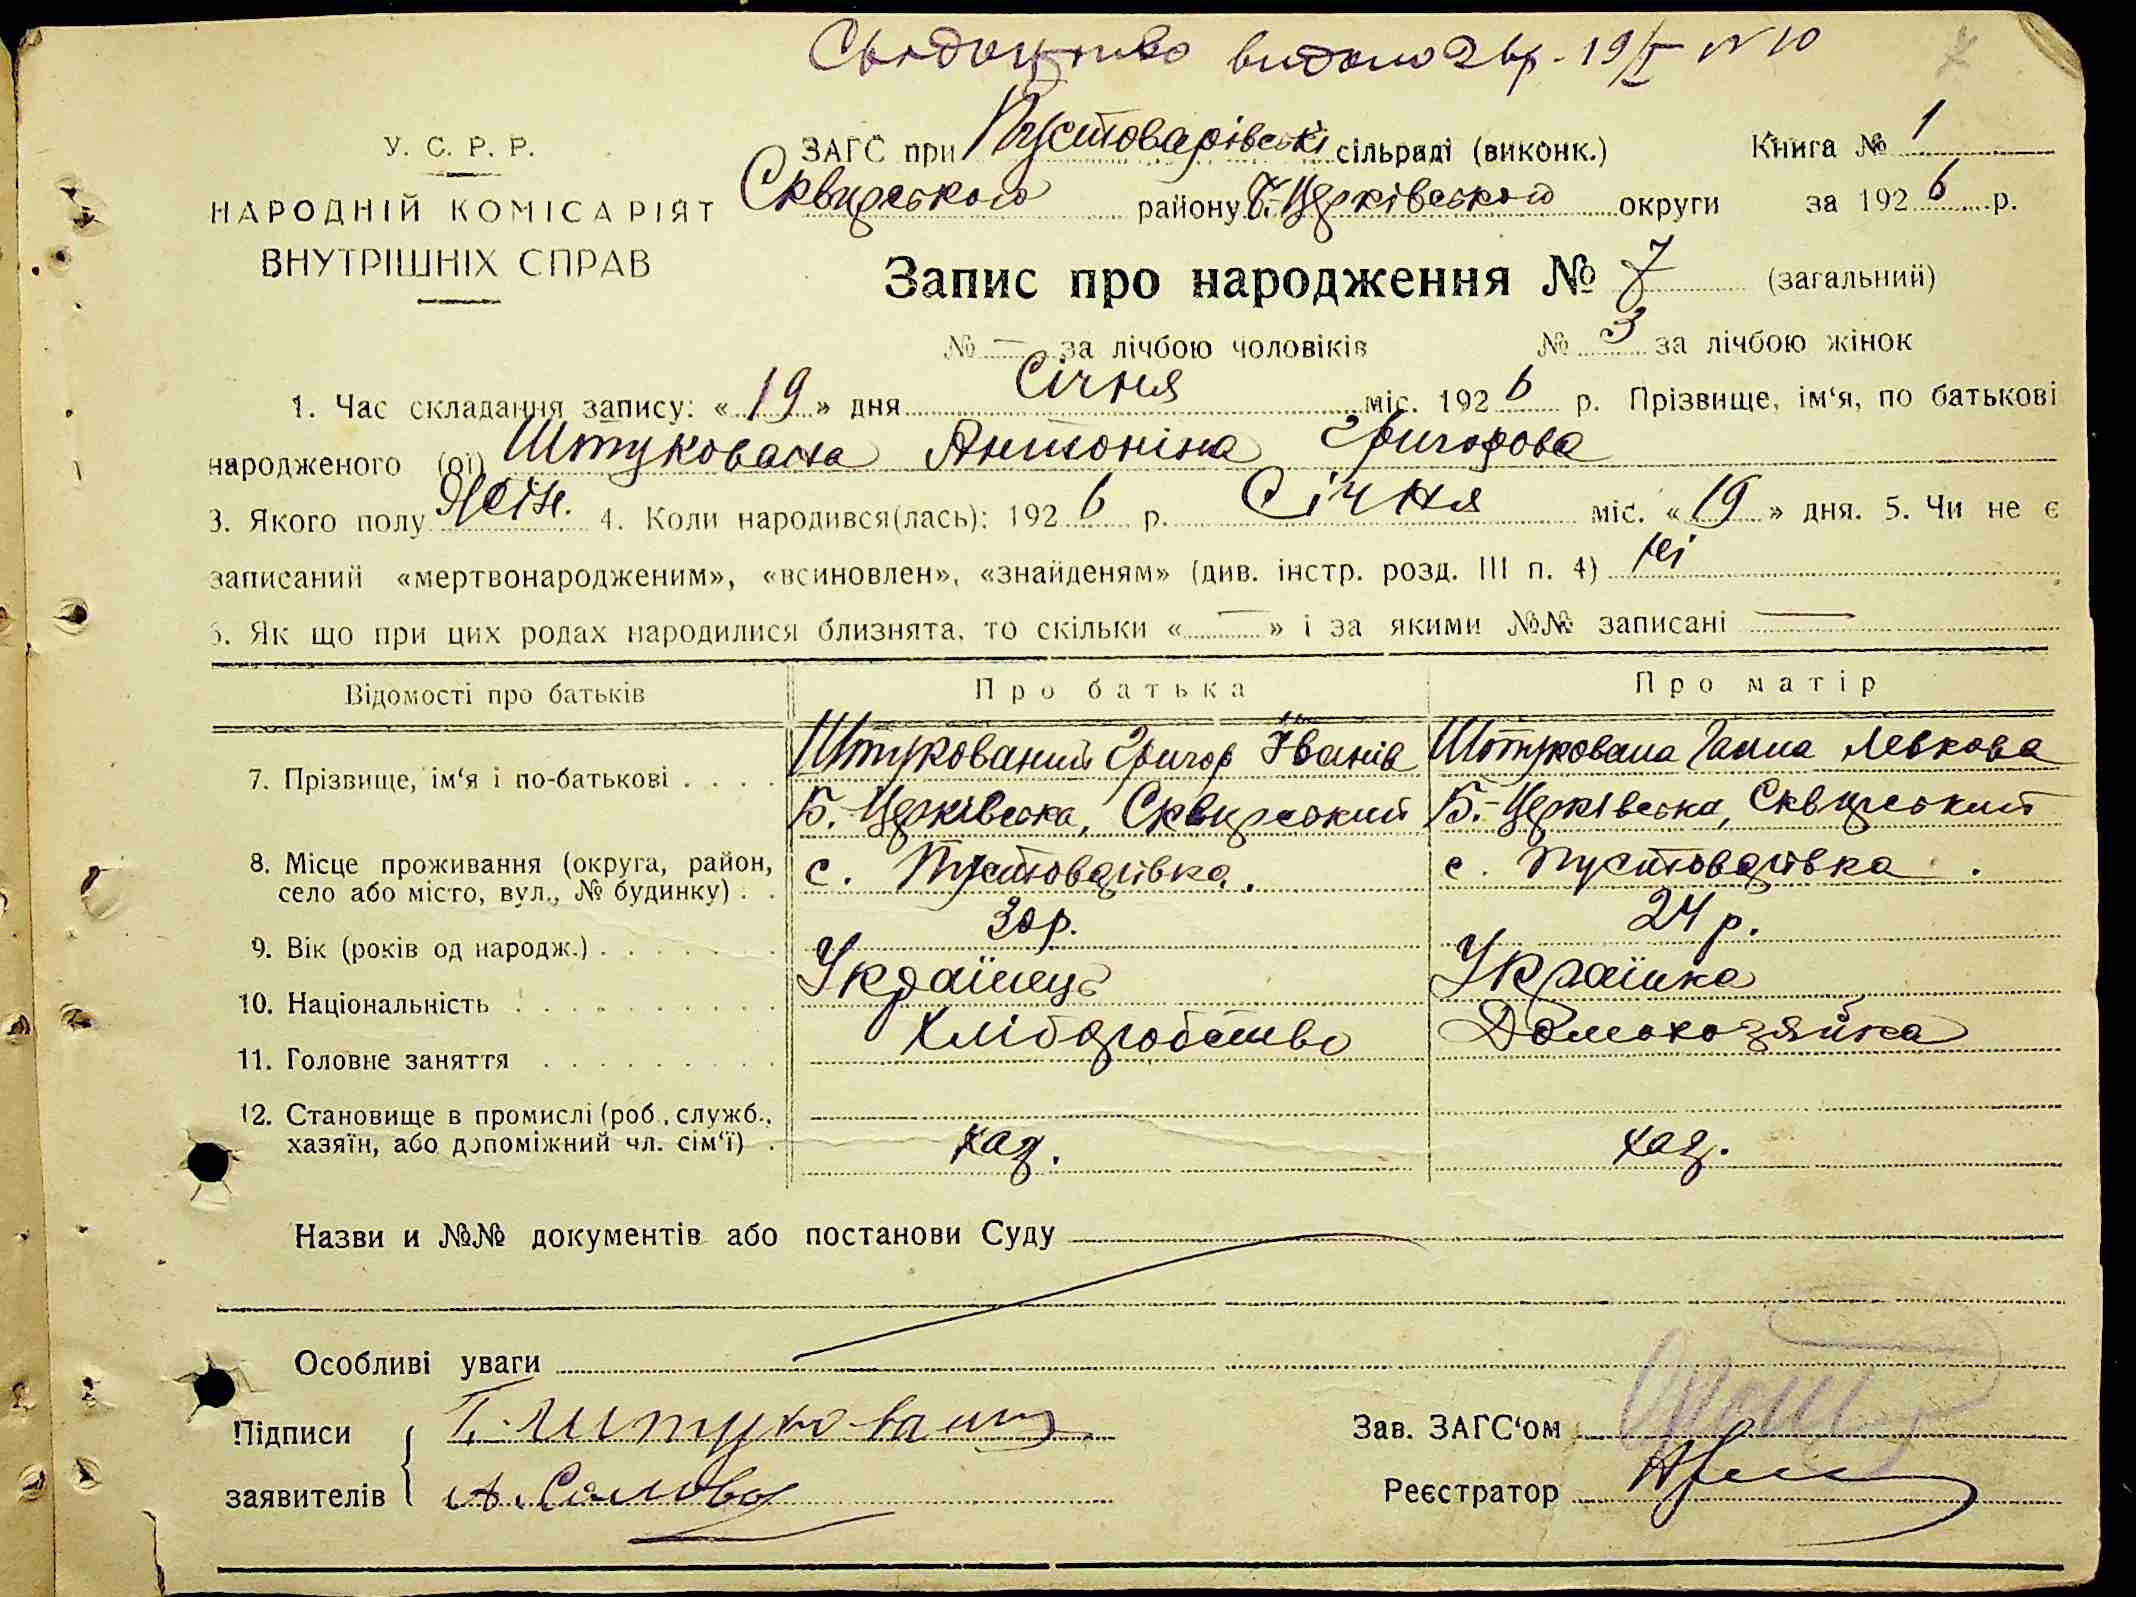 Свідоцтво видано 19/I N 10
У. С. Р. Р.
НАРОДНІЙ КОМІСАРІЯТ
ВНУТРІШНІХ СПРАВ
ЗАГС при Пустоварівські сільраді (виконк.) Книга № 1
Сквирського району Б.-Церківського округи за 1926 р.
Запис про народження № 7 (загальний)
№ — за лічбою чоловіків № 3 за лічбою жінок
1. Час складання запису: «19» дня Січня міс. 1926 р. Прізвище, ім‘я, по батькові
народженого (ої) Штукована Антоніна Григорова
3. Якого полу Жін. 4. Коли народився(лась): 1926 р. Січня міс. «19» дня. 5. Чи не є
записаний «мертвонародженим», «всиновлен», «знайденям» (див. інстр. розд. III п. 4) Ні
6. Як що при цих родах народилися близнята, то скільки «—» і за якими №№ записані —
Відомості про батьків Про батька Про матір
7. Прізвище, ім‘я і по-батькові . . . . Штукований Григор Іванів Штукована Ганна Левкова
Б.-Церківська, Сквирський Б.-Церківська, Сквирський
8. Місце проживання (округа, район, с. Пустоварівка. с. Пустоварівка.
село або місто, вул., № будинку) . .
9. Вік (років од народж.) . . . . . . . 30 р. 24 р.
10. Національність . . . . . . . . . . Українець Українка
11. Головне заняття . . . . . . . . . Хліборобство Домохозяйка
12. Становище в промислі (роб., служб.,
хазяїн, або допоміжний чл. сім‘ї) . хаз. хаз.
Назви и №№ документів або постанови Суду
Особливі уваги
Підписи Г. Штукований Зав. ЗАГС‘ом
заявителів А. Реєстратор